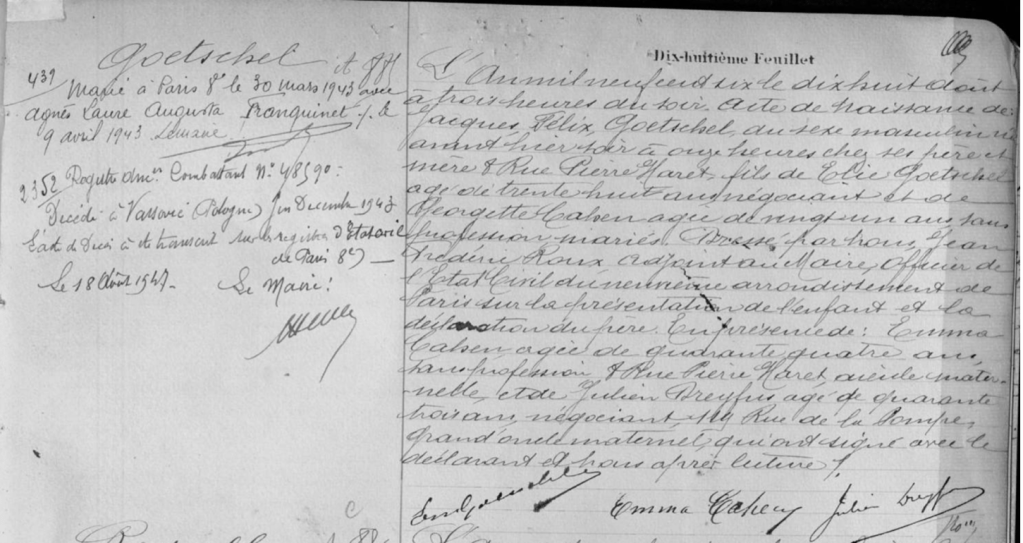 Goetschel
Dix-huitième Feuillet
431
Marié à Paris 8e le 30 mars 1943 avec
Agnès Laure Augusta Franquinet ./. le
9 avril 1943.
2352 Combattant No 48590:
Décédé à Varsovie (Pologne) fin Décembre 1943
L'acte de Décès à été transcrit sur les registres d'Etat civil
de Paris 8e)
Le 18 Août 1947. Le Maire:
L'An mil neuf cent six le dix huit août
à trois heures du soir. Acte de naissance de:
Jacques, Félix, Goetschel, du sexe masculin né
avant hier soir à onze heures chez ses père et
mère 8 Rue Pierre Haret, fils de Elie Goetschel
agé de trente huit ans négociant et de
Georgette Cahen agée de vingt un ans sans
profession mariés. Dressé par nous, Jean
Frédéric Roux Adjoint au Maire, Officier de
l'Etat Civil du neuvième arrondissement de
Paris sur la présentation de l'enfant et la
déclaration du père. En présence de: Emma
Cahen, agée de quarante quatre ans,
sans profession 8 Rue Pierre Haret, aieule mater-
nelle, et de Julien Dreyfus agé de quarante
trois ans, négociant, Rue de la Pompe,
grand oncle maternel, qui ont signé avec le
déclarant et nous après lecture ./.
Emma Cahen Julien Dreyfus